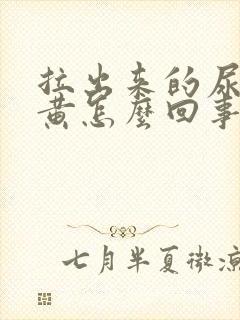 拉出来的尿
黄怎麼回事
七月半夏微凉